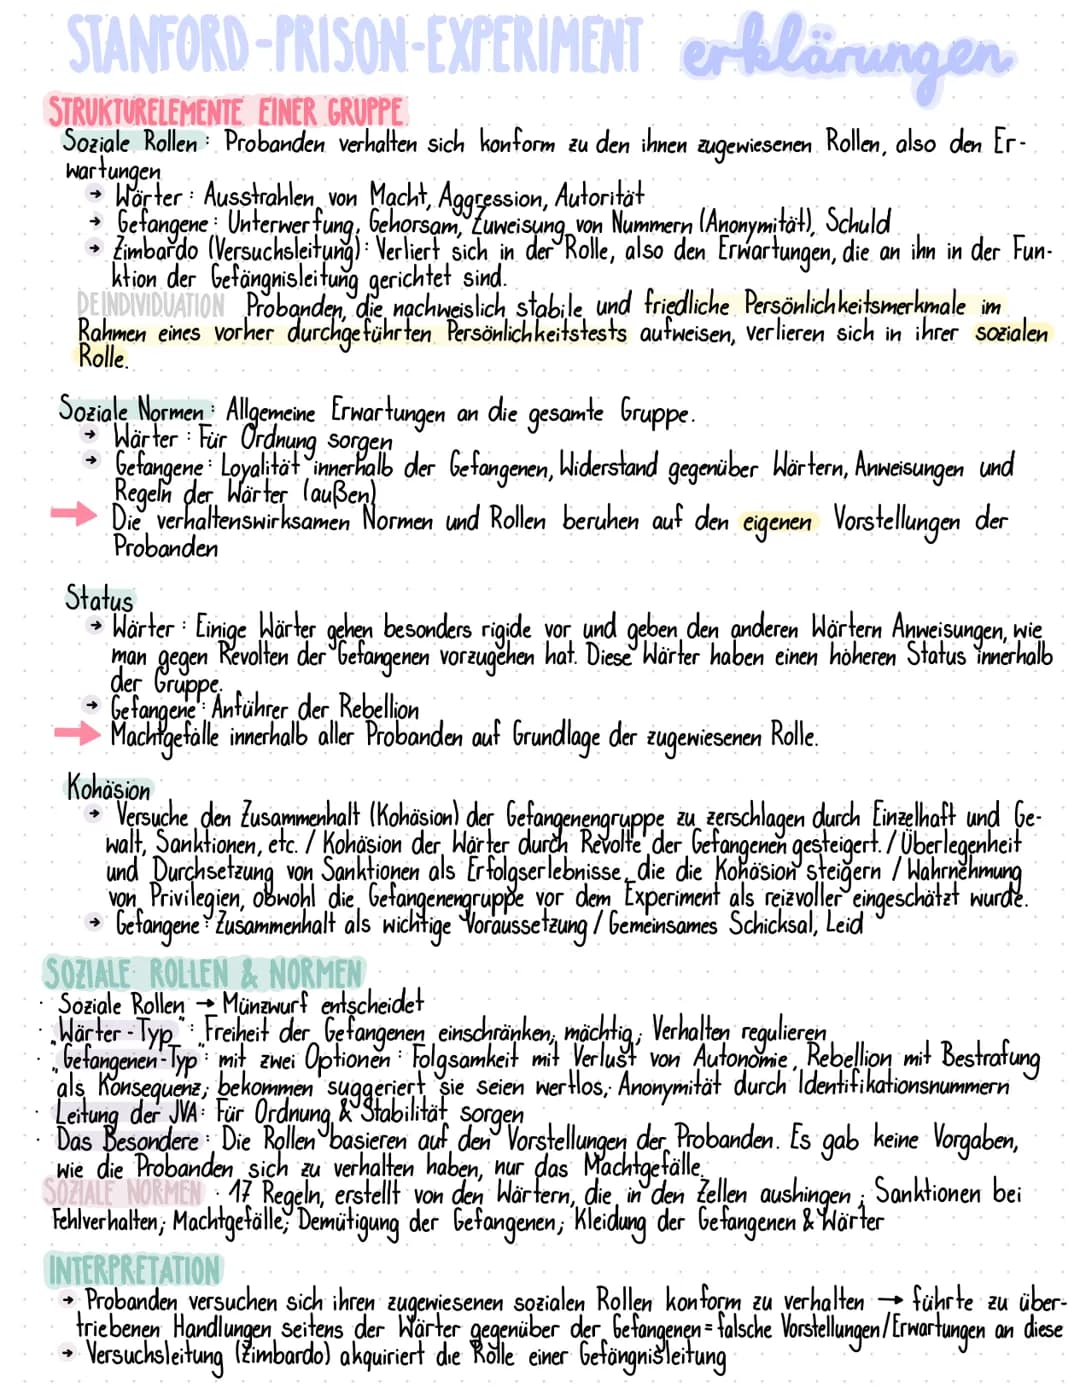 STANFORD-PRISON-EXPERIMENT erklärungen
STRUKTURELEMENTE EINER GRUPPE
Soziale Rollen: Probanden verhalten sich konform zu den ihnen zugewiesenen Rollen, also den Er-
wartungen
→ Wärter: Ausstrahlen von Macht, Aggression, Autorität
→ Gefangene: Unterwerfung, Gehorsam, Zuweisung von Nummern (Anonymität), Schuld
→ Zimbardo (Versuchsleitung): Verliert sich in der Rolle, also den Erwartungen, die an ihn in der Fun-
ktion der Gefängnisleitung gerichtet sind.
DEINDIVIDUATION Probanden, die nachweislich stabile und friedliche Persönlichkeitsmerkmale im
Rahmen eines vorher durchgeführten Persönlichkeitstests aufweisen, verlieren sich in ihrer sozialen
Rolle.
Soziale Normen: Allgemeine Erwartungen an die gesamte Gruppe.
→ Wärter: Für Ordnung sorgen
→ Gefangene: Loyalität innerhalb der Gefangenen, Widerstand gegenüber Wärtern, Anweisungen und
Regeln der Wärter (außen)
→ Die verhaltenswirksamen Normen und Rollen beruhen auf den eigenen Vorstellungen der
Probanden
Status
→ Wärter: Einige Wärter gehen besonders rigide vor und geben den anderen Wärtern Anweisungen, wie
man gegen Revolten der Gefangenen vorzugehen hat. Diese Wärter haben einen höheren Status innerhalb
der Gruppe.
→ Gefangene: Anführer der Rebellion
→ Machtgefälle innerhalb aller Probanden auf Grundlage der zugewiesenen Rolle.
Kohäsion
→ Versuche den Zusammenhalt (Kohäsion) der Gefangenengruppe zu zerschlagen durch Einzelhaft und Ge-
walt, Sanktionen, etc. / Kohäsion der Wärter durch Revolte der Gefangenen gesteigert. / Überlegenheit
und Durchsetzung von Sanktionen als Erfolgserlebnisse, die die Kohäsion steigern / Wahrnehmung
von Privilegien, obwohl die Gefangenengruppe vor dem Experiment als reizvoller eingeschätzt wurde.
→ Gefangene: Zusammenhalt als wichtige Voraussetzung / Gemeinsames Schicksal, Leid
SOZIALE ROLLEN & NORMEN
· Soziale Rollen → Münzwurf entscheidet
· „Wärter-Typ": Freiheit der Gefangenen einschränken; mächtig; Verhalten regulieren
· „Gefangenen-Typ": mit zwei Optionen: Folgsamkeit mit Verlust von Autonomie, Rebellion mit Bestrafung
als Konsequenz; bekommen suggeriert sie seien wertlos; Anonymität durch Identifikationsnummern
· Leitung der JVA: Für Ordnung & Stabilität sorgen
· Das Besondere: Die Rollen basieren auf den Vorstellungen der Probanden. Es gab keine Vorgaben,
wie die Probanden sich zu verhalten haben, nur das Machtgefälle.
SOZIALE NORMEN · 17 Regeln, erstellt von den Wärtern, die in den Zellen aushingen; Sanktionen bei
Fehlverhalten; Machtgefälle; Demütigung der Gefangenen; Kleidung der Gefangenen & Wärter
INTERPRETATION
→ Probanden versuchen sich ihren zugewiesenen sozialen Rollen konform zu verhalten → führte zu über-
triebenen Handlungen seitens der Wärter gegenüber der Gefangenen = falsche Vorstellungen/Erwartungen an diese
→ Versuchsleitung (Zimbardo) akquiriert die Rolle einer Gefängnisleitung